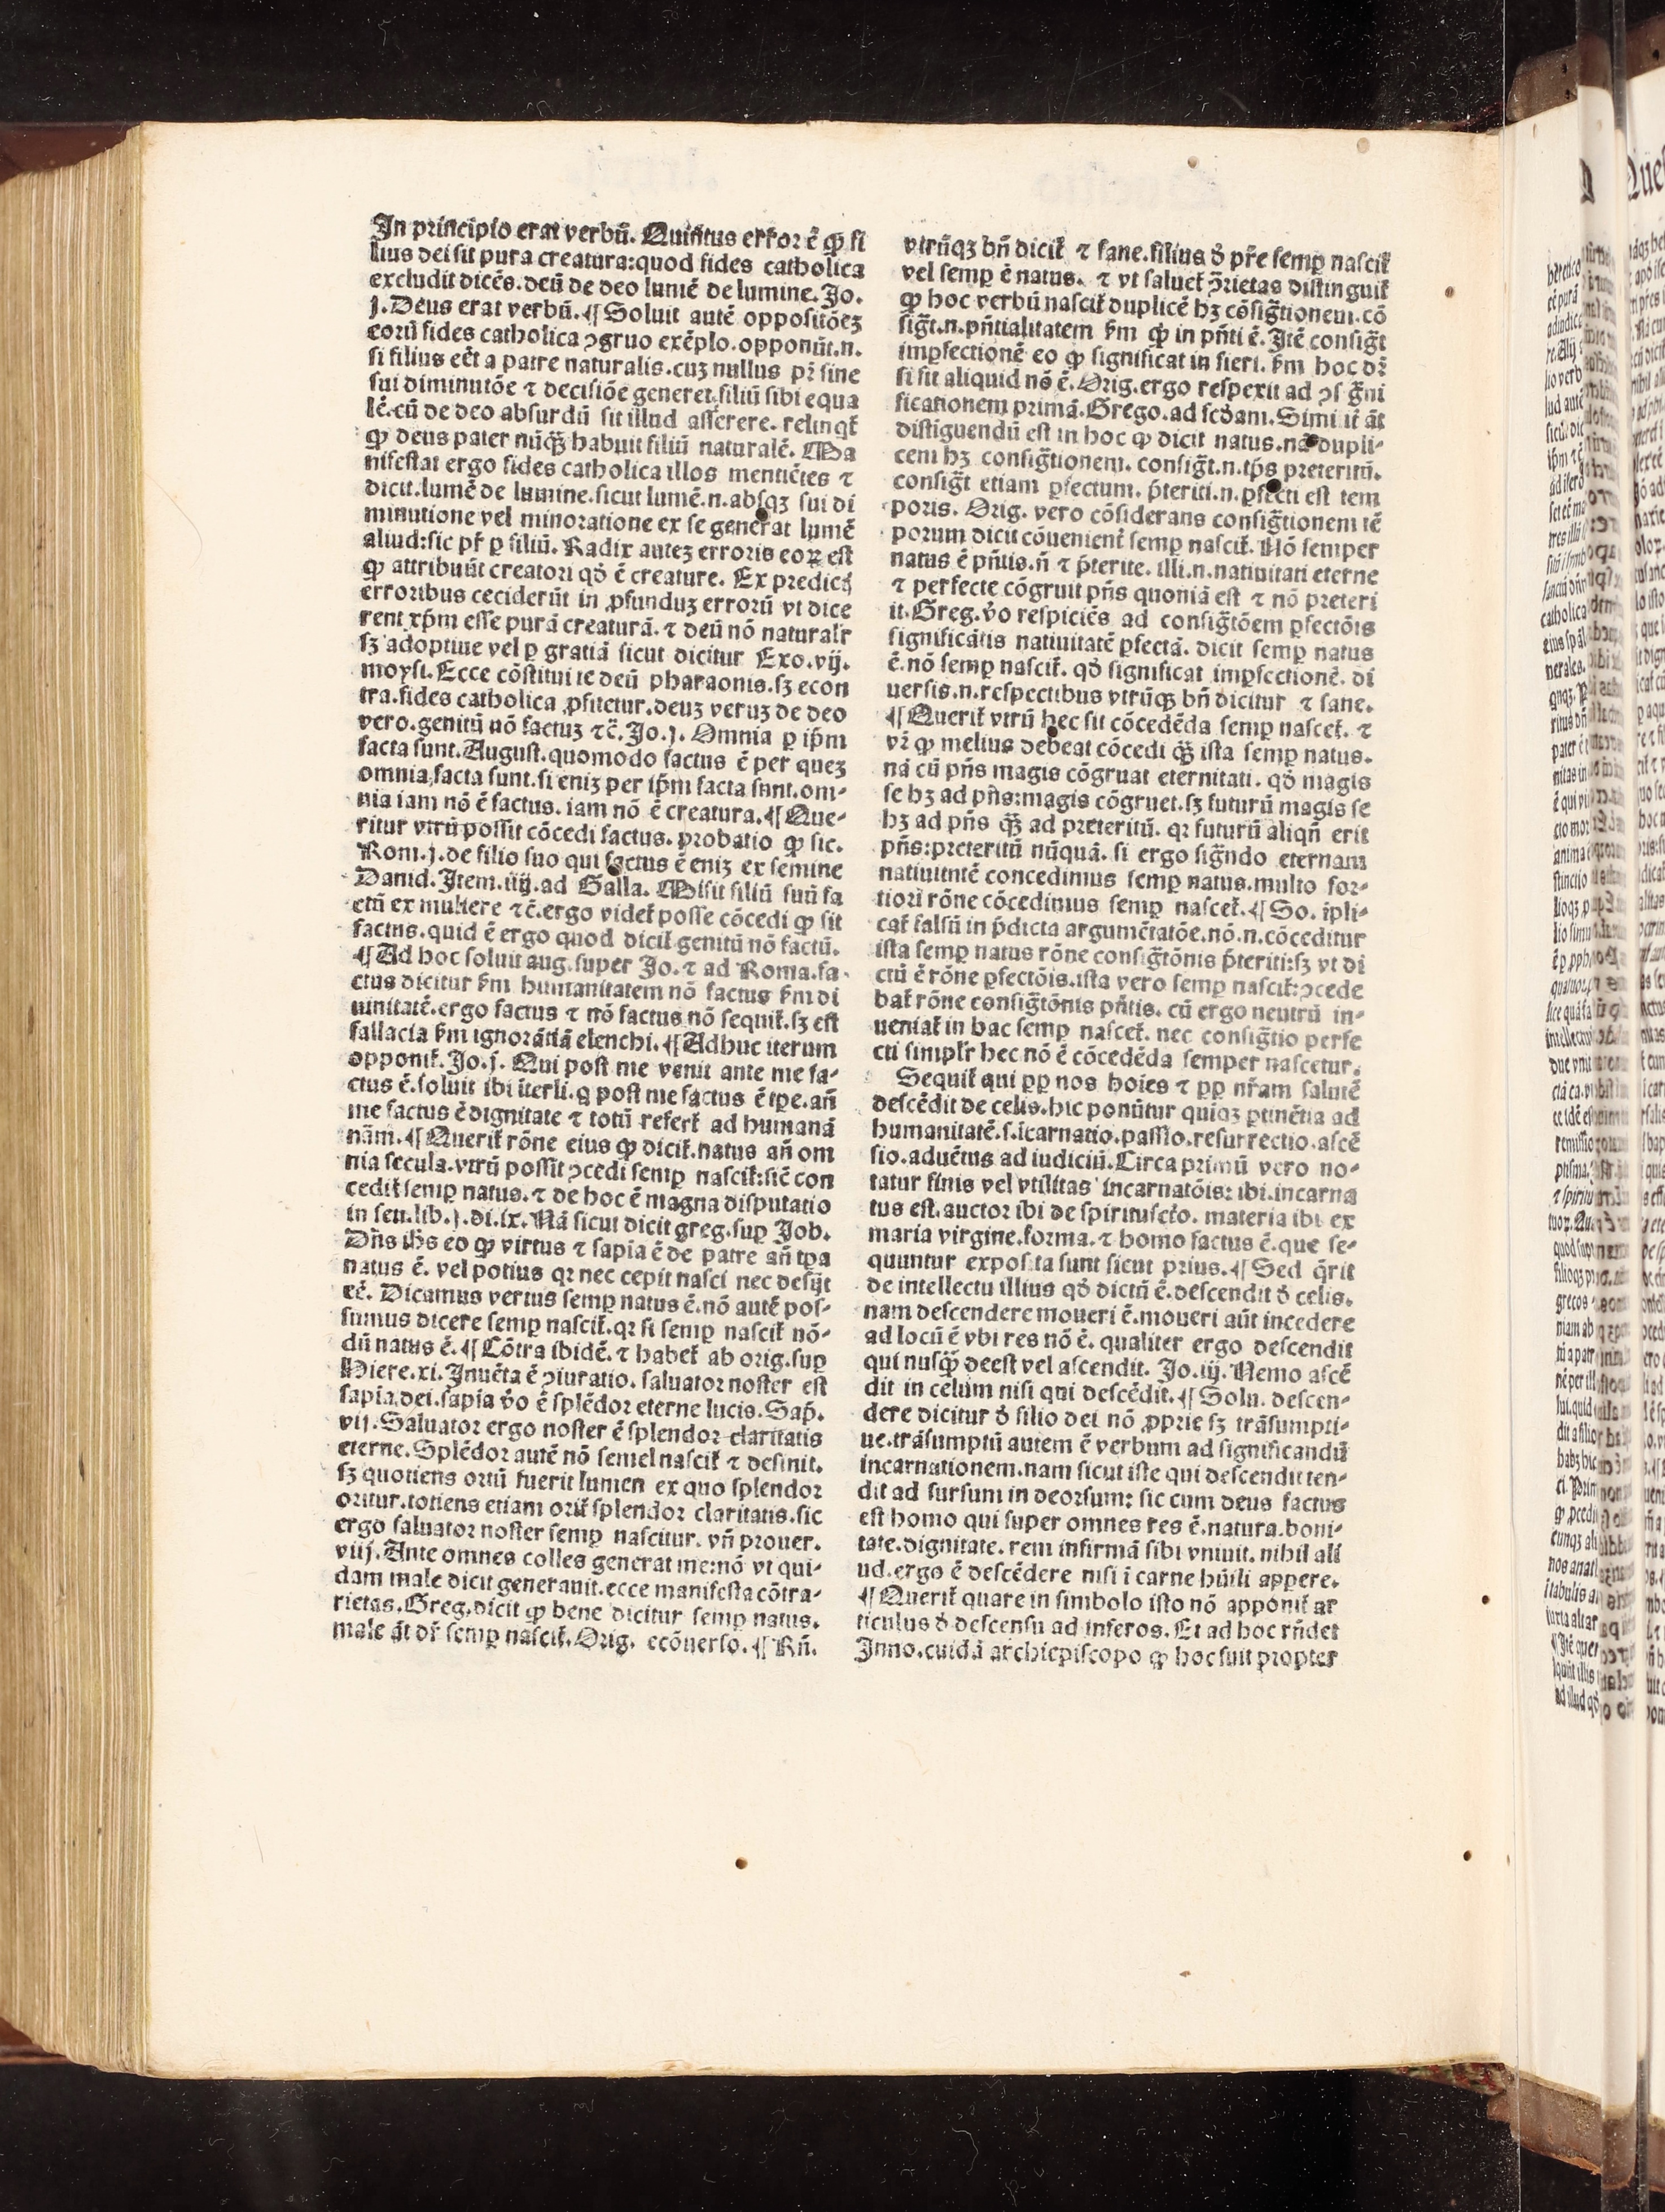 In principio erat verbū. Quintus error ē ꝙ fi
lius dei sit pura creatura:quod fides catholica
excludit dicēs.deū de deo lumē de lumine.Jo.
j.Deus erat verbū.¶Soluit autē oppositōeȝ
eorū fides catholica ꝯgruo exēplo.opponūt.n.
si filius eēt a patre naturalis.cuȝ nullus pr̄ sine
sui diminutōe ⁊ decisiōe generet.filiū sibi equa
lē.cū de deo absurdū sit illud asserere. relinqt̄
ꝙ deus pater nūqꝫ habuit filiū naturalē. Ma
nifestat ergo fides catholica illos mentiētes ⁊
dicit.lumē de lumine.sicut lumē.n.absqꝫ sui di
minutione vel minoratione ex se generat lumē
aliud:sic pr̄ ꝑ filiū. Radix auteȝ erroris eoꝝ est
ꝙ attribuūt creatori qđ ē creature. Ex predictꝭ
erroribus ceciderūt in ꝓfunduȝ errorū vt dice
rent xp̄m esse purā creaturā. ⁊ deū nō naturalr̄
sꝫ adoptiue vel ꝑ gratiā sicut dicitur Exo.vij.
moysi.Ecce cōstitui te deū pharaonis.sꝫ econ
tra.fides catholica ꝓfitetur.deuȝ veruȝ de deo
vero.genitū nō factuȝ ⁊c̄.Jo.j. Omnia ꝑ ip̄m
facta sunt.August.quomodo factus ē per queȝ
omnia facta sunt.si eniȝ per ip̄m facta sunt.om-
nia iam nō ē factus. iam nō ē creatura.¶Que-
ritur vtrū possit cōcedi factus. probatio ꝙ sic.
Rom.j.de filio suo qui factus ē eniȝ ex semine
Dauid.Item.iiij.ad Galla. Misit filiū suū fa
ctū ex muliere ⁊c̄.ergo videt̄ posse cōcedi ꝙ sit
factus.quid ē ergo quod dicit̄ genitū nō factū.
¶Ad hoc soluit aug.super Jo.⁊ ad Roma.fa-
ctus dicitur ẜm humanitatem nō factus ẜm di
uinitatē.ergo factus ⁊ nō factus nō sequit̄.sꝫ est
fallacia ẜm ignorātiā elenchi.¶Adhuc iterum
opponit̄. Jo.j. Qui post me venit ante me fa-
ctus ē.soluit ibi īterli.q̄ post me factus ē tꝑe.an̄
me factus ē dignitate ⁊ totū refert̄ ad humanā
nām.¶Querit̄ rōne eius ꝙ dicit̄.natus an̄ om
nia secula.vtrū possit ꝯcedi semꝑ nascit̄:sic̄ con
cedit̄ semꝑ natus.⁊ de hoc ē magna disputatio
in sen.lib.j.di.ix.Nā sicut dicit greg.suꝑ Job.
Dn̄s ih̄s eo ꝙ virtus ⁊ sapia ē de patre an̄ tꝑa
natus ē. vel potius qꝛ nec cepit nasci nec desijt
eē. Dicamus verius semꝑ natus ē.nō autē pos-
sumus dicere semꝑ nascit̄.qꝛ si semꝑ nascit̄ nō-
dū natus ē.¶Cōtra ibidē.⁊ habet̄ ab orig.suꝑ
Hiere.xi.Inuēta ē ꝯiuratio. saluator noster est
sapia dei.sapia v̄o ē splēdor eterne lucis. Sap̄.
vij. Saluator ergo noster ē splendor claritatis
eterne.Splēdor autē nō semel nascit̄ ⁊ desinit.
sꝫ quotiens ortū fuerit lumen ex quo splendor
oritur.totiens etiam orit̄ splendor claritatis.sic
ergo saluator noster semꝑ nascitur. vn̄ prouer.
viij.Ante omnes colles generat me:nō vt qui-
dam male dicit generauit.ecce manifesta cōtra-
rietas.Greg.dicit ꝙ bene dicitur semꝑ natus.
male āt dr̄ semꝑ nascit̄.Orig. ecōuerso.¶Rn̄.
vtrūqꝫ bn̄ dicit̄ ⁊ sane.filius đ pr̄e semꝑ nascit̄
vel semꝑ ē natus. ⁊ vt saluet̄ ꝯ̄rietas distinguit̄
ꝙ hoc verbū nascit̄ duplicē hꝫ cōsiḡtionem.cō
siḡt.n.pn̄tialitatem ẜm ꝙ in pn̄ti ē. Itē consiḡt
imꝑfectionē eo ꝙ significat in fieri. ẜm hoc dꝛ̄
si fit aliquid nō ē.Orig.ergo respexit ad ꝯsiḡni
ficationem primā.Grego.ad scđam.Similit̄ āt
distiguendū est in hoc ꝙ dicit natus.nā dupli-
cem hꝫ consiḡtionem. consiḡt.n.tp̄s preteritū.
consiḡt etiam ꝑfectum. p̄teriti.n.ꝑfecti est tem
poris. Orig. vero cōsiderans consiḡtionem tē
porum dicit cōuenient̄ semꝑ nascit̄. Nō semper
natus ē pn̄tis.n̄ ⁊ p̄terite. illi.n.natiuitati eterne
⁊ perfecte cōgruit pn̄s quoniā est ⁊ nō preteri
it.Greg.v̄o respiciēs ad consiḡtōem ꝑfectōis
significātis natiuitatē ꝑfectā. dicit semꝑ natus
ē.nō semꝑ nascit̄. qđ significat imꝑfectionē. di
uersis.n.respectibus vtrūqꝫ bn̄ dicitur ⁊ sane.
¶Querit̄ vtrū hec sit cōcedēda semꝑ nascet̄. ⁊
vꝛ̄ ꝙ melius debeat cōcedi qꝫ̄ ista semꝑ natus.
nā cū pn̄s magis cōgruat eternitati. qđ magis
se hꝫ ad pn̄s:magis cōgruet.sꝫ futurū magis se
hꝫ ad pn̄s qꝫ̄ ad preteritū. qꝛ futurū aliqn̄ erit
pn̄s:preteritū nūquā. si ergo siḡndo eternam
natiuitatē concedimus semꝑ natus.multo for-
tiori rōne cōcedimus semꝑ nascet̄.¶So. ipli-
cat̄ falsū in p̄dicta argumētatōe.nō.n.cōceditur
ista semꝑ natus rōne consiḡtōnis p̄teriti:sꝫ vt di
ctū ē rōne ꝑfectōis.ista vero semꝑ nascit̄:ꝯcede
bat̄ rōne consiḡtōnis pn̄tis. cū ergo neutrū in-
ueniat̄ in hac semꝑ nascet̄. nec consiḡtio perfe
cti simplr̄ hec nō ē cōcedēda semper nascetur.
Sequit̄ qui ꝓꝑ nos hoīes ⁊ ꝓꝑ nr̄am salutē
descēdit de celis.hic ponūtur quiqꝫ ꝑtinētia ad
humanitatē.s.icarnatio.passio.resurrectio.ascē
sio.aduētus ad iudiciū.Circa primū vero no-
tatur finis vel vtilitas incarnatōis: ibi.incarna
tus est.auctor ibi de spiritusctō. materia ibi ex
maria virgine.forma.⁊ homo factus ē.que se-
quuntur exposita sunt sicut prius.¶Sed q̄rit̄
de intellectu illius qđ dictū ē.descendit đ celis.
nam descendere moueri ē.moueri aūt incedere
ad locū ē vbi res nō ē. qualiter ergo descendit
qui nusqꝫ̄ deest vel ascendit. Jo.iij.Nemo ascē
dit in celum nisi qui descēdit.¶Solu. descen-
dere dicitur đ filio dei nō ꝓprie sꝫ trāsumpti-
ue.trāsumptū autem ē verbum ad significandū
incarnationem.nam sicut iste qui descendit ten-
dit ad sursum in deorsum: sic cum deus factus
est homo qui super omnes res ē.natura.boni-
tate.dignitate. rem infirmā sibi vniuit. nihil ali
ud.ergo ē descēdere nisi ī carne hūili appere.
¶Querit̄ quare in simbolo isto nō apponit̄ ar
ticulus đ descensu ad inferos. Et ad hoc rn̄det
Inno.cuidā archiepiscopo ꝙ hoc fuit propter